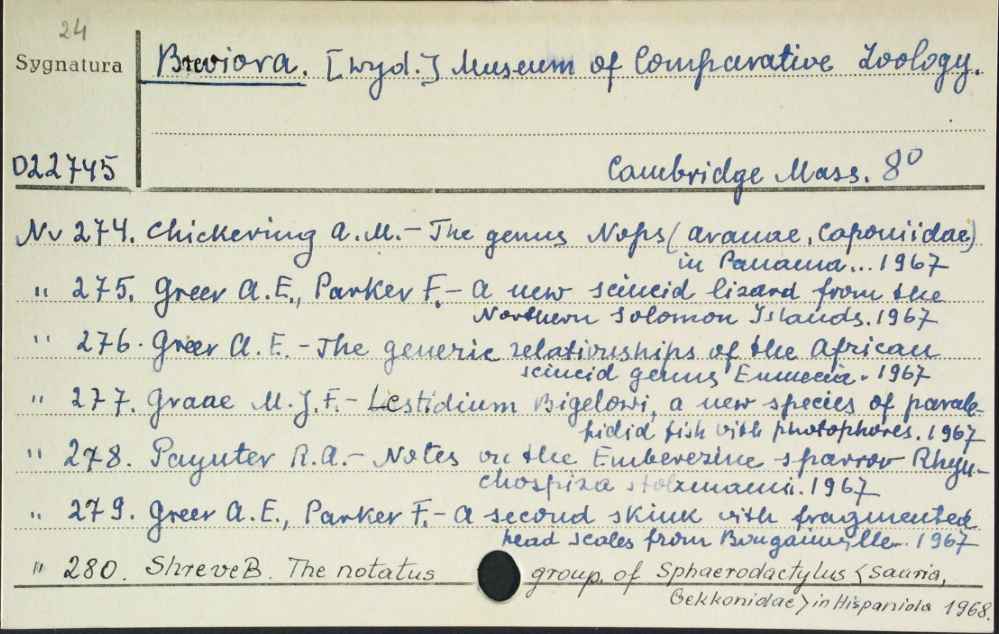 24
Sygnatura
Breviora. [wyd.] Museum of Comparative Zoology.
D22745
Cambridge Mass. 8°
Nr 274. Chickering A.M. – The genus Nops (Araneae, Caponiidae)
in Panama... 1967
" 275. Greer A.E., Parker F. – A new scincid lizard from the
Northern Solomon Islands. 1967
" 276. Greer A.E. – The generic relationships of the African
scincid genus Eumecia. 1967
" 277. Graae M.J.F. – Lestidium Bigelowi, a new species of parale-
pidid fish with photophores. 1967
" 278. Paynter R.A. – Notes on the Emberezine sparrow Rhyn-
chospiza stolzmanni. 1967
" 279. Greer A.E., Parker F. – A second skink with fragmented
head scales from Bougainville. 1967
" 280. Shreve B. The notatus group of Sphaerodactylus <Sauria,
Gekkonidae> in Hispaniola 1968.